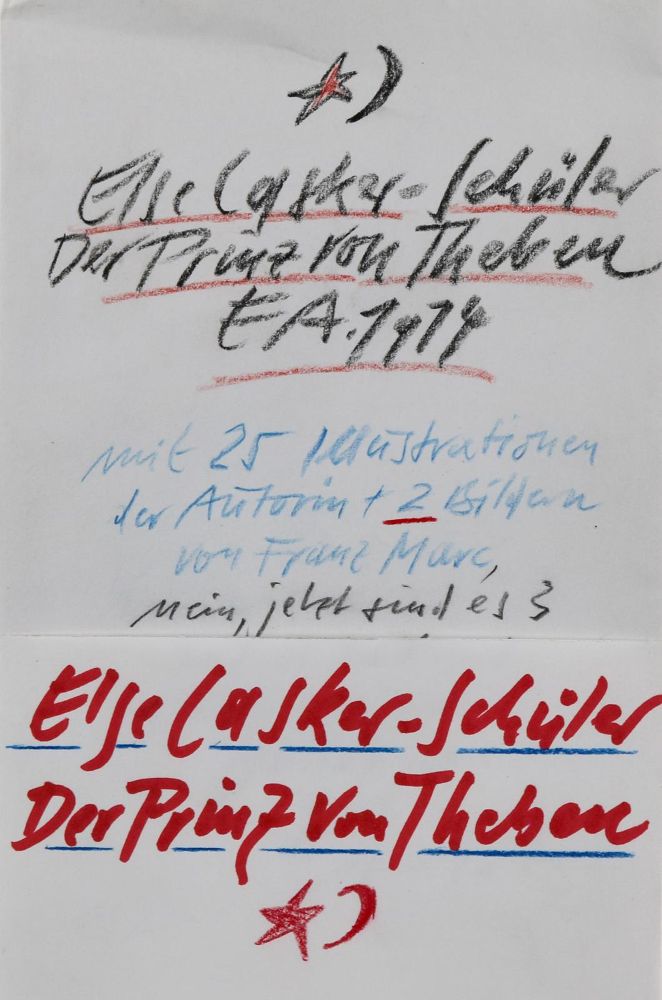 Else Lasker-Schüler
Der Prinz von Theben
EA. 1914
mit 25 Illustrationen
der Autorin + 2 Bildern
von Franz Marc,
nein, jetzt sind es 3
Else Lasker-Schüler
Der Prinz von Theben